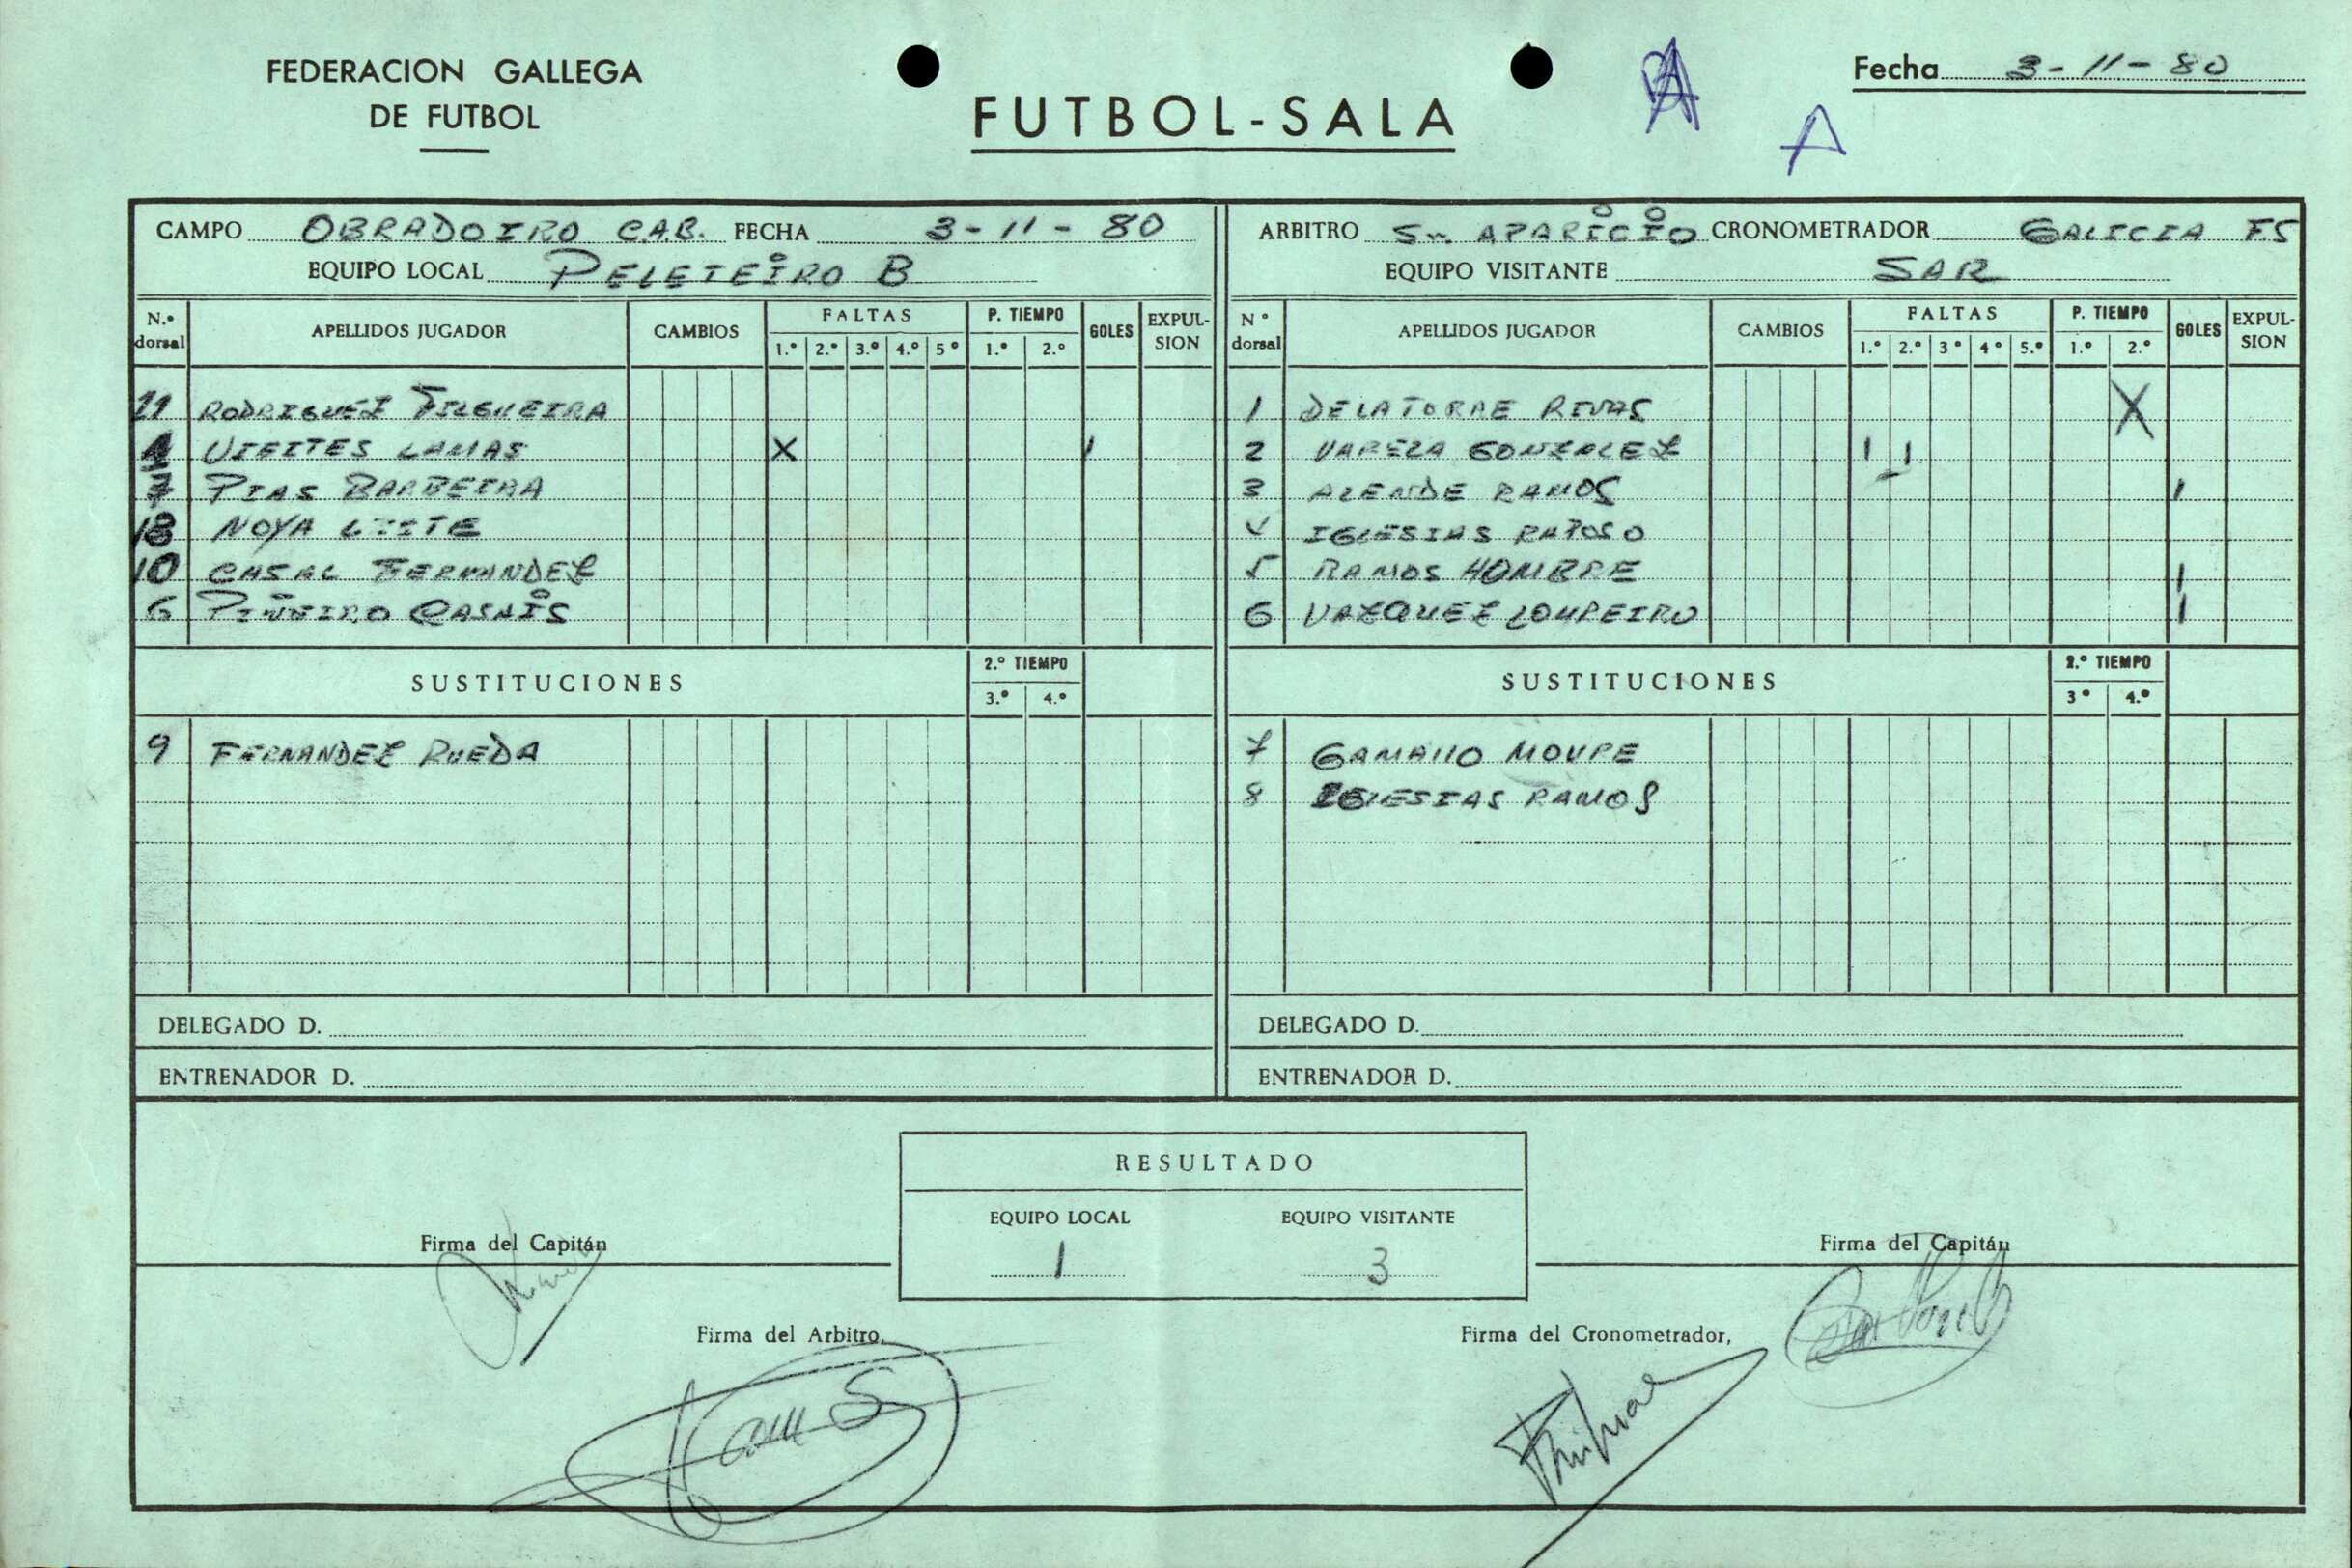 FEDERACION GALLEGA
DE FUTBOL
FUTBOL-SALA
A
Fecha 3-11-80
CAMPO OBRADOIRO C.A.B. FECHA 3-11-80
EQUIPO LOCAL PELETEIRO B
N.º dorsal APELLIDOS JUGADOR CAMBIOS FALTAS 1.º 2.º 3.º 4.º 5º P. TIEMPO 1.º 2.º GOLES EXPUL-SION
11 RODRIGUEZ FILGUEIRA
4 VIEITES LAMAS X 1
7 PIAS BARBEIRA
18 NOYA LEITE
10 CASAL FERNANDEZ
6 PIÑEIRO CASAIS
SUSTITUCIONES 2.º TIEMPO 3.º 4.º
9 FERNANDEZ RUEDA
DELEGADO D.
ENTRENADOR D.
ARBITRO Sr. APARICIO CRONOMETRADOR GALICIA F.S
EQUIPO VISITANTE SAR
N º dorsal APELLIDOS JUGADOR CAMBIOS FALTAS 1.º 2.º 3º 4º 5.º P. TIEMPO 1.º 2.º GOLES EXPUL-SION
1 DE LA TORRE RIVAS X
2 VARELA GONZALEZ 1 1
3 ALENDE RAMOS 1
4 IGLESIAS RAPOSO
5 RAMOS HOMBRE 1
6 VAZQUEZ LOUREIRO 1
SUSTITUCIONES 2.º TIEMPO 3º 4.º
7 GAMALLO MOURE
8 IGLESIAS RAMOS
DELEGADO D.
ENTRENADOR D.
RESULTADO
EQUIPO LOCAL EQUIPO VISITANTE
1 3
Firma del Capitán
Firma del Capitán
Firma del Arbitro,
Firma del Cronometrador,